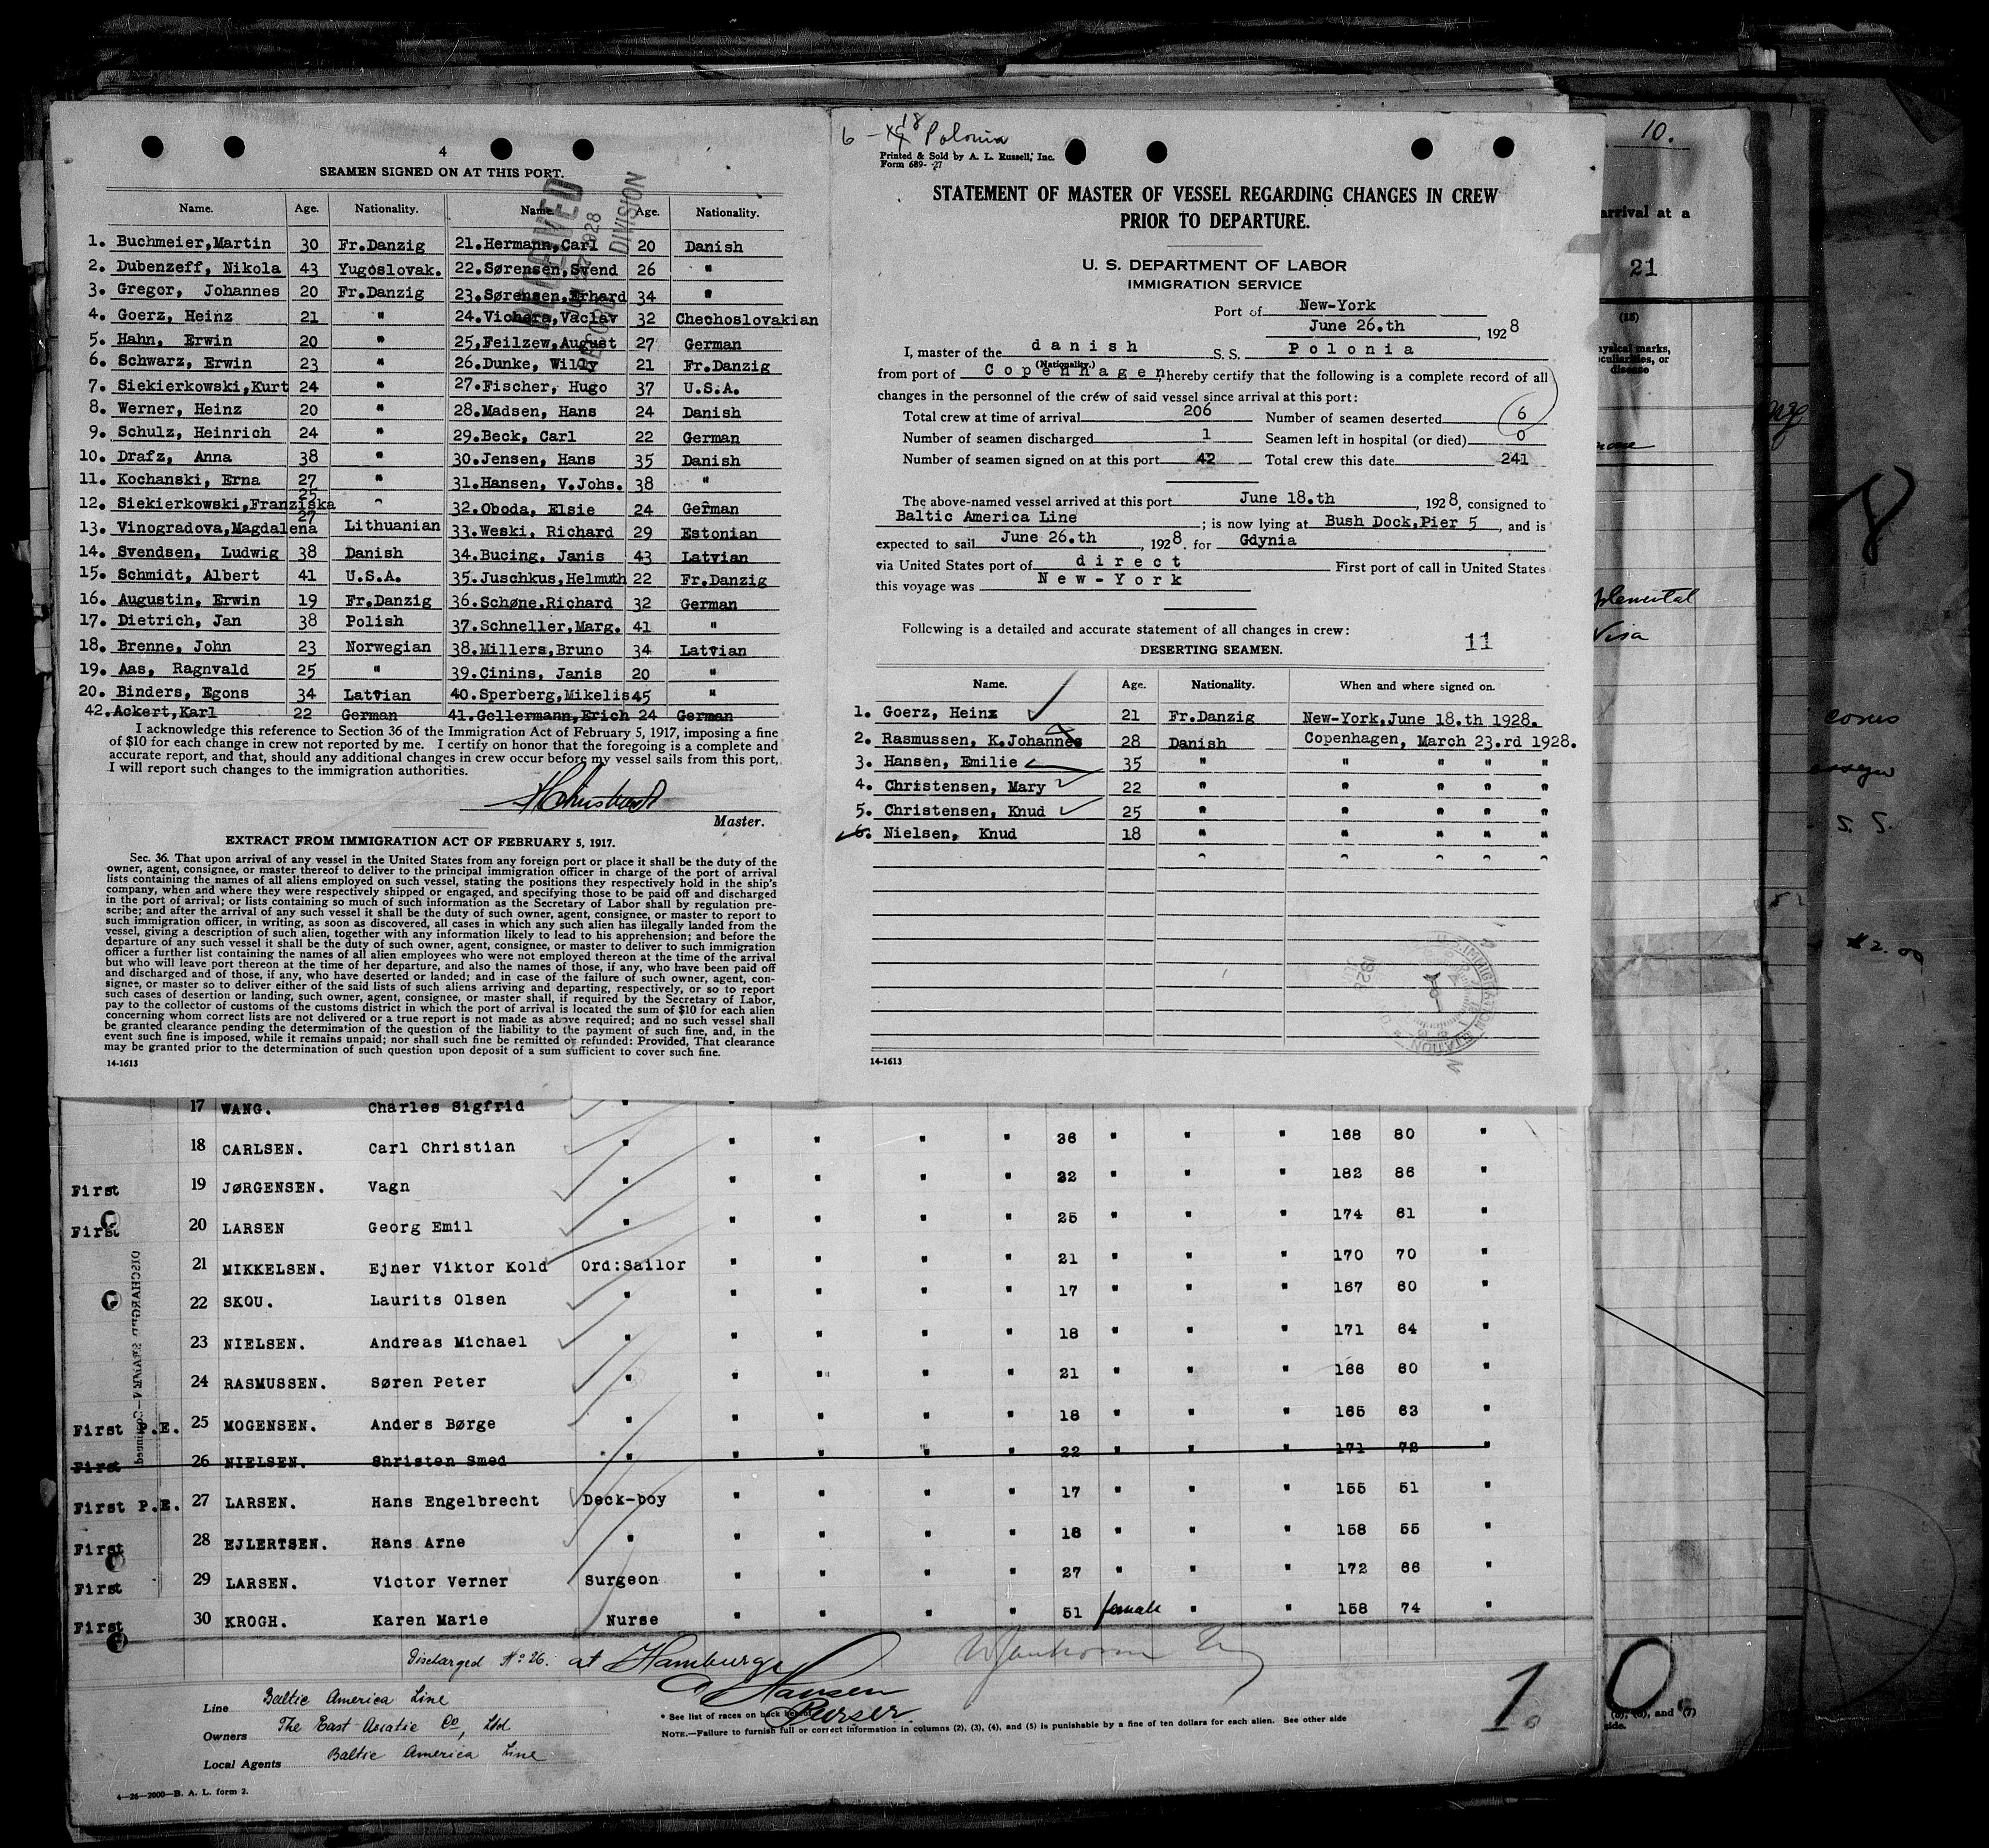 4
SEAMEN SIGNED ON AT THIS PORT.
Name. Age. Nationality. Name. Age. Nationality.
1. Buchmeier,Martin 30 Fr.Danzig 21.Hermann,Carl 20 Danish
2. Dubenzeff, Nikola 43 Yugoslovak. 22.Sørensen,Svend 26 "
3. Gregor, Johannes 20 Fr.Danzig 23.Sørensen,Erhard 34 "
4. Goerz, Heinz 21 " 24.Vichera,Vaclav 32 Chechoslovakian
5. Hahn, Erwin 20 " 25,Feilzew,August 27 German
6. Schwarz, Erwin 23 " 26.Dunke, Willy 21 Fr.Danzig
7. Siekierkowski,Kurt 24 " 27.Fischer, Hugo 37 U.S.A.
8. Werner, Heinz 20 " 28.Madsen, Hans 24 Danish
9. Schulz, Heinrich 24 " 29.Beck, Carl 22 German
10. Drafz, Anna 38 " 30.Jensen, Hans 35 Danish
11. Kochanski, Erna 27 " 31.Hansen, V.Johs. 38 "
12. Siekierkowski,Franziska 25 " 32.Oboda, Elsie 24 German
13. Vinogradova,Magdalena 27 Lithuanian 33.Weski, Richard 29 Estonian
14. Svendsen, Ludwig 38 Danish 34.Bucing, Janis 43 Latvian
15. Schmidt, Albert 41 U.S.A. 35.Juschkus,Helmuth 22 Fr.Danzig
16. Augustin, Erwin 19 Fr.Danzig 36.Schøne,Richard 32 German
17. Dietrich, Jan 38 Polish 37.Schneller,Marg. 41 "
18. Brenne, John 23 Norwegian 38.Millers,Bruno 34 Latvian
19. Aas, Ragnvald 25 " 39.Cinins, Janis 20 "
20. Binders, Egons 34 Latvian 40.Sperberg,Mikelis 45 "
42.Ackert,Karl 22 German 41.Gellermann,Erich 24 German
I acknowledge this reference to Section 36 of the Immigration Act of February 5, 1917, imposing a fine
of $10 for each change in crew not reported by me. I certify on honor that the foregoing is a complete and
accurate report, and that, should any additional changes in crew occur before my vessel sails from this port,
I will report such changes to the immigration authorities.
Master.
EXTRACT FROM IMMIGRATION ACT OF FEBRUARY 5, 1917.
Sec. 36. That upon arrival of any vessel in the United States from any foreign port or place it shall be the duty of the
owner, agent, consignee, or master thereof to deliver to the principal immigration officer in charge of the port of arrival
lists containing the names of all aliens employed on such vessel, stating the positions they respectively hold in the ship's
company, when and where they were respectively shipped or engaged, and specifying those to be paid off and discharged
in the port of arrival; or lists containing so much of such information as the Secretary of Labor shall by regulation pre-
scribe; and after the arrival of any such vessel it shall be the duty of such owner, agent, consignee, or master to report to
such immigration officer, in writing, as soon as discovered, all cases in which any such alien has illegally landed from the
vessel, giving a description of such alien, together with any information likely to lead to his apprehension; and before the
departure of any such vessel it shall be the duty of such owner, agent, consignee, or master to deliver to such immigration
officer a further list containing the names of all alien employees who were not employed thereon at the time of the arrival
but who will leave port thereon at the time of her departure, and also the names of those, if any, who have been paid off
and discharged and of those, if any, who have deserted or landed; and in case of the failure of such owner, agent, con-
signee, or master so to deliver either of the said lists of such aliens arriving and departing, respectively, or so to report
such cases of desertion or landing, such owner, agent, consignee, or master shall, if required by the Secretary of Labor,
pay to the collector of customs of the customs district in which the port of arrival is located the sum of $10 for each alien
concerning whom correct lists are not delivered or a true report is not made as above required; and no such vessel shall
be granted clearance pending the determination of the question of the liability to the payment of such fine, and, in the
event such fine is imposed, while it remains unpaid; nor shall such fine be remitted or refunded: Provided, That clearance
may be granted prior to the determination of such question upon deposit of a sum sufficient to cover such fine.
14-1613
6 - 18 Polonia
Printed & Sold by A. L. Russell, Inc.
Form 689- -27
STATEMENT OF MASTER OF VESSEL REGARDING CHANGES IN CREW
PRIOR TO DEPARTURE.
U. S. DEPARTMENT OF LABOR
IMMIGRATION SERVICE
Port of New-York
June 26.th, 1928
I, master of the danish S. S. Polonia
(Nationality.)
from port of Copenhagen, hereby certify that the following is a complete record of all
changes in the personnel of the crew of said vessel since arrival at this port:
Total crew at time of arrival 206 Number of seamen deserted 6
Number of seamen discharged 1 Seamen left in hospital (or died) 0
Number of seamen signed on at this port 42 Total crew this date 241
The above-named vessel arrived at this port June 18.th, 1928, consigned to
Baltic America Line; is now lying at Bush Dock,Pier 5, and is
expected to sail June 26.th, 1928. for Gdynia
via United States port of direct First port of call in United States
this voyage was New-York
Following is a detailed and accurate statement of all changes in crew: 11
DESERTING SEAMEN.
Name. Age. Nationality. When and where signed on.
1. Goerz, Heinz 21 Fr.Danzig New-York,June 18.th 1928.
2. Rasmussen, K.Johannes 28 Danish Copenhagen, March 23.rd 1928.
3. Hansen, Emilie 35 " " " " "
4. Christensen, Mary 22 " " " " "
5. Christensen, Knud 25 " " " " "
6. Nielsen, Knud 18 " " " " "
" " " " "
14-1613
17 WANG. Charles Sigfrid "
18 CARLSEN. Carl Christian " " " " " 36 " " " 168 80 "
First 19 JØRGENSEN. Vagn " " " " " 32 " " " 182 86 "
First 20 LARSEN Georg Emil " " " " " 25 " " " 174 61 "
21 MIKKELSEN. Ejner Viktor Kold Ord:Sailor " " " " 21 " " " 170 70 "
22 SKOU. Laurits Olsen " " " " " 17 " " " 167 60 "
23 NIELSEN. Andreas Michael " " " " " 18 " " " 171 64 "
24 RASMUSSEN. Søren Peter " " " " " 21 " " " 166 60 "
First P.E. 25 MOGENSEN. Anders Børge " " " " " 18 " " " 165 63 "
First 26 NIELSEN. Christen Smed " " " " " 22 " " " 171 72 "
First P.E. 27 LARSEN. Hans Engelbrecht Deck-boy " " " " 17 " " " 155 51 "
First 28 EJLERTSEN. Hans Arne " " " " " 18 " " " 158 55 "
First 29 LARSEN. Victor Verner Surgeon " " " " 27 " " " 172 66 "
First 30 KROGH. Karen Marie Nurse " " " " 51 female " " 158 74 "
Discharged No 26. at Hamburg
Hansen
Purser
Line Baltic America Line
Owners The East Asiatic Co, Ltd
Local Agents Baltic America Line
* See list of races on back hereof
NOTE.—Failure to furnish full or correct information in columns (2), (3), (4), and (5) is punishable by a fine of ten dollars for each alien. See other side
1.
4—26—2000—B. A. L. form 2.
10.
arrival at a
21
(15)
marks,
or
disease
Visa
S. S.
$2.00
8
0
and (7)
side.